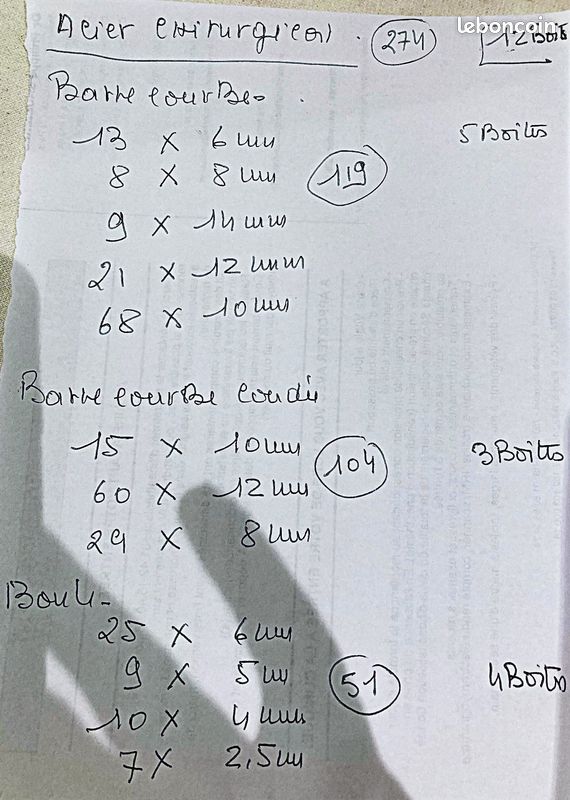 Acier chirurgical. 274 12 Boîts
leboncoin
Barre courbe.
13 x 6 mm 5 Boîtes
8 x 8 mm 119
9 x 14 mm
21 x 12 mm
68 x 10 mm
Barre courbe coudée
15 x 10 mm 104 3 Boîtes
60 x 12 mm
29 x 8 mm
Boule
25 x 6 mm
9 x 5 mm 51 4 Boîtes
10 x 4 mm
7 x 2,5 mm